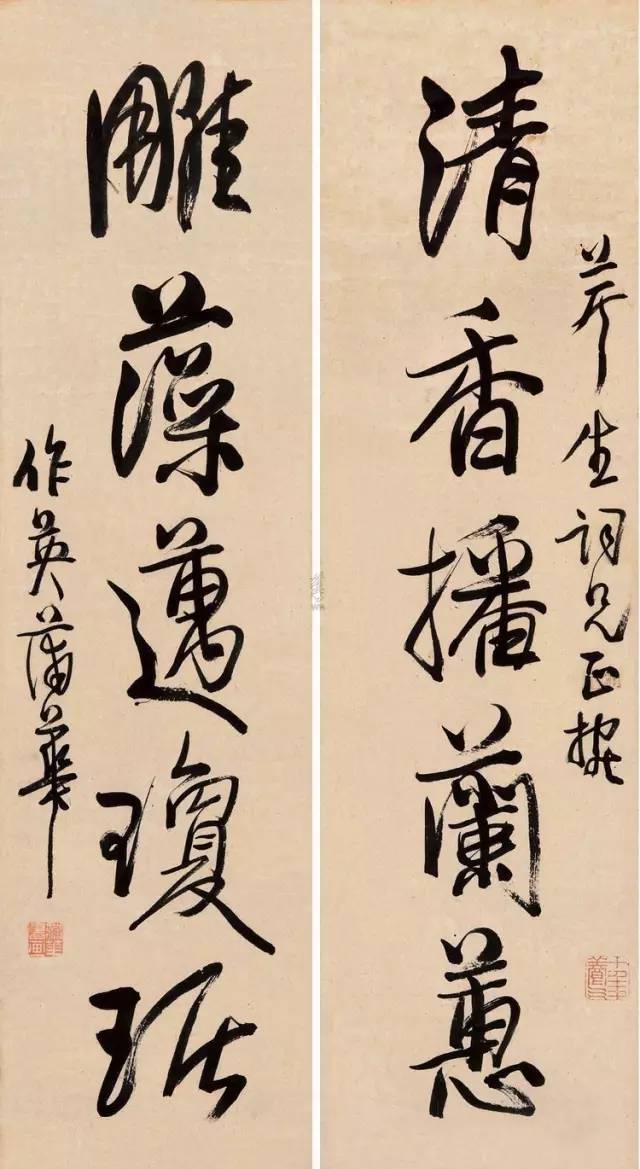 芹生詞兄正
清香播蘭蕙
雕藻邁瓊琚
作英蒲華